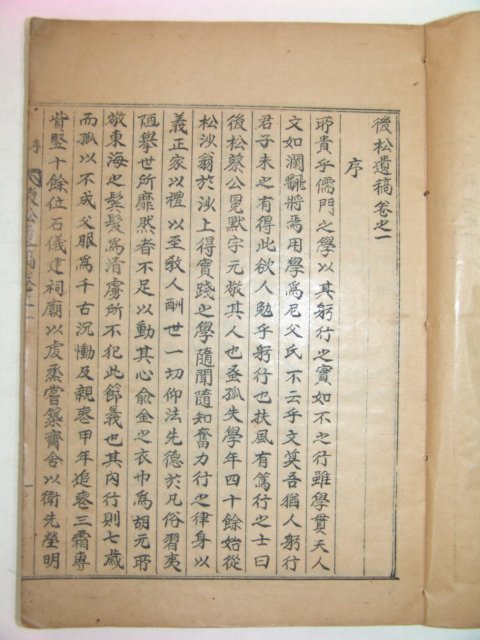 後松遺稿卷之一
序
所貴乎儒門之學以其躬行之實如不之行雖學貫天人
文如瀾飜將焉用學爲尼父氏不云乎文莫吾猶人躬行
君子未之有得此欲人勉乎躬行也扶風有篤行之士曰
後松蔡公冕默字元敬其人也蚤孤失學年四十餘始從
松沙翁於沙上得實踐之學隨聞隨知奮力行之律身以
義正家以禮以至敎人酬世一切仰法先德於凡俗習夷
陋擧世所靡然者不足以動其心兪金之衣巾爲胡元所
敬東海之髮髮爲淸虜所不犯此節義也其內行則七歲
而孤以不成父服爲千古沉慟及親喪甲年追喪三霜專
貲竪十餘位石儀建祠廟以虔烝嘗築齋舍以衛先塋明
序
後松遺稿卷之一
一